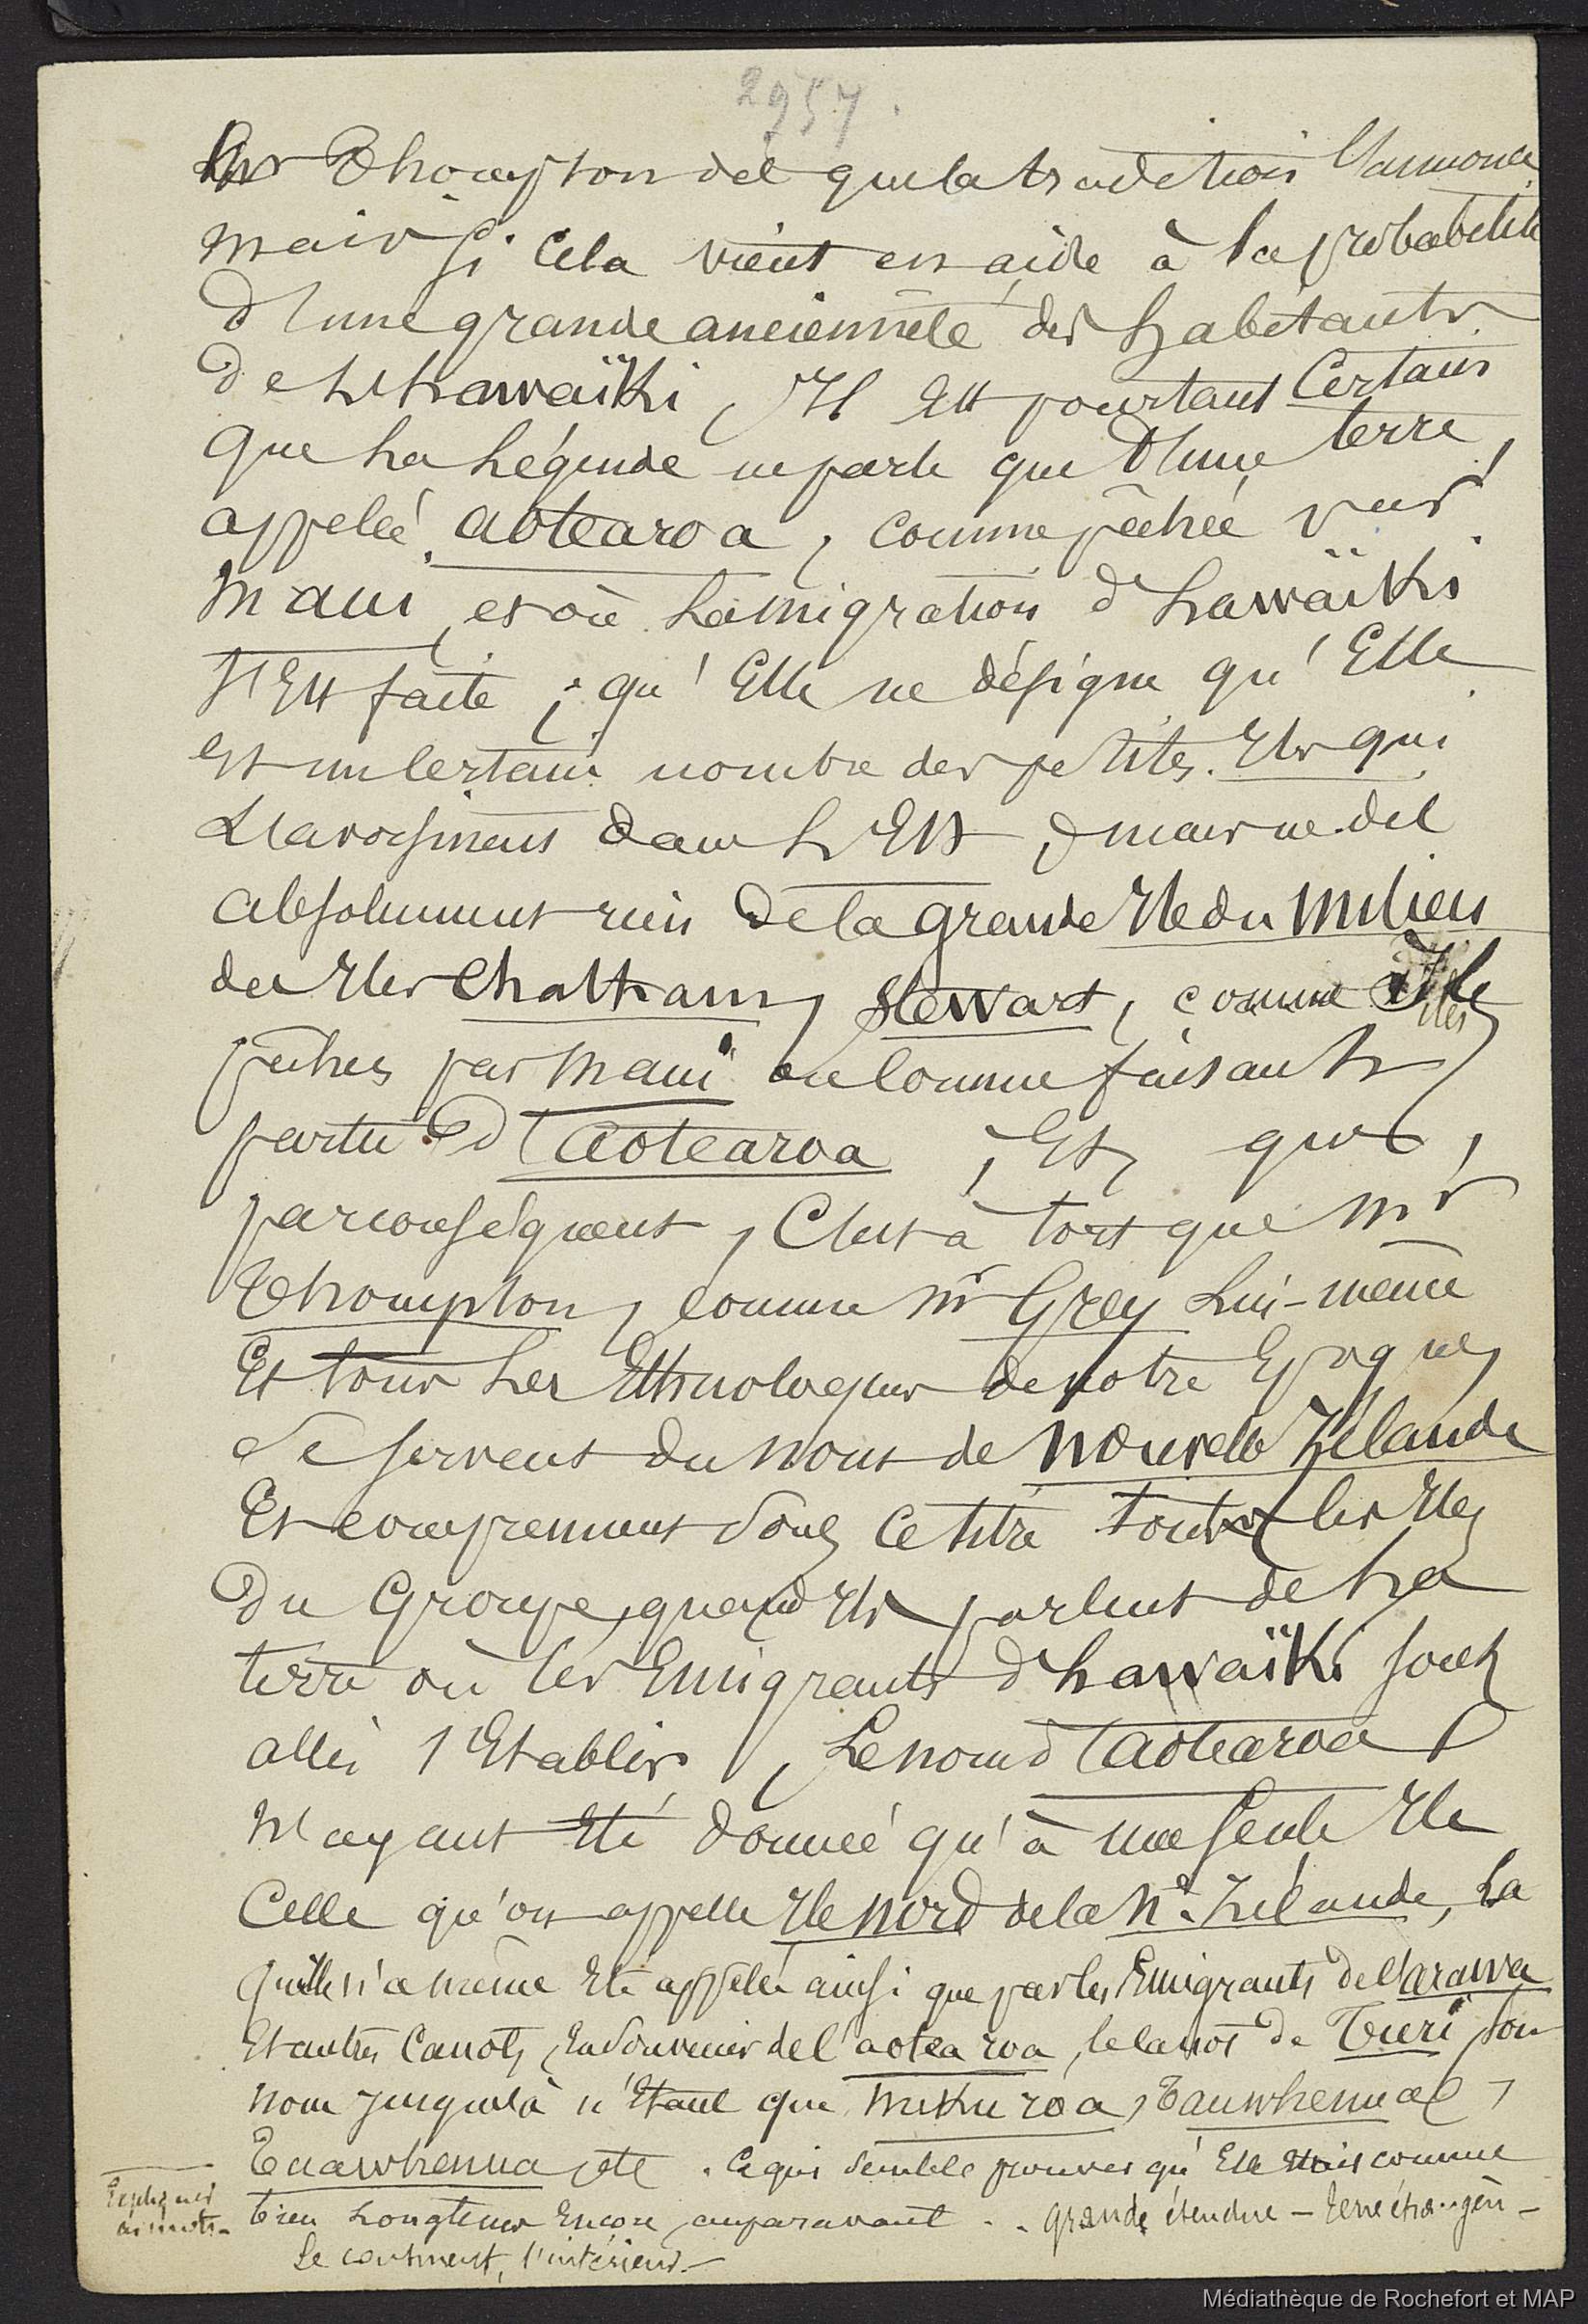 2957.
Mr Thompson dit que la tradition l'annonce
mais si cela vient en aide à la probabilité
d'une grande ancienneté des habitants
de l'hawaïki, Il Est pourtant Certain
que La Légende ne parle que d'une terre,
appelée aotearoa, comme pêchée par
Maui, et où L'émigration d'hawaïki
s'Est faite ; qu'Elle ne désigne qu'Elle
Et un Certain nombre des petites Iles qui
L'avoisinent dans L'Est, mais ne dit
absolument rien de la grande Ile du Milieu
des Iles Chatham, Stewart, comme Iles
pêchées par Maui ou comme faisant
partie d'aotearoa ; Et que,
par conséquent, C'est à tort que Mr
Thompson, comme Mr Grey Lui-même
Et tous Les Ethnologues de notre Epoque,
se servent du nom de Nouvelle Zélande
Et comprennent sous ce titre toutes les Iles
du Groupe, quand Ils parlent de La
terre où les Emigrants d'hawaïki sont
allés s'Etablir, Le nom d'aotearoa
n'ayant Eté donné qu'à une seule Ile
Celle qu'on appelle Ile Nord de la Nle Zélande, La
quelle n'a même Eté appelée ainsi que par les Emigrants de l'arawa
Et autres Canots, En souvenir de l'aotearoa, le canot de Turi, son
nom jusque là n'Etant que nukuroa, Tauwhenua,
Tuawhenua, etc. Ce qui semble prouver qu'Elle Etait connue
bien Longtems Encore auparavant .. grande étendue – terre étrangère –
Le continent, l'intérieur –
Expliquer
ces mots –
Médiathèque de Rochefort et MAP